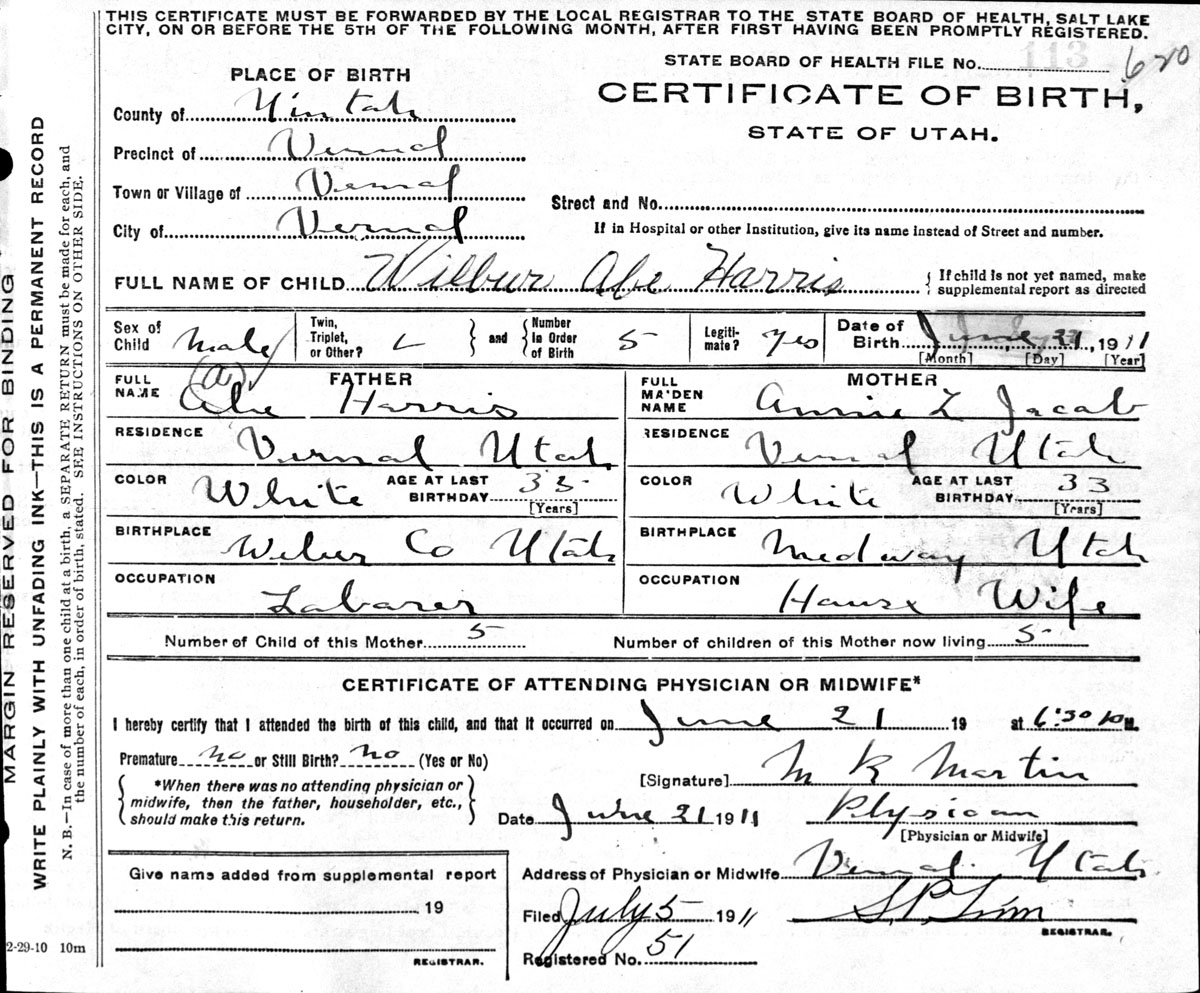 THIS CERTIFICATE MUST BE FORWARDED BY THE LOCAL REGISTRAR TO THE STATE BOARD OF HEALTH, SALT LAKE
CITY, ON OR BEFORE THE 5TH OF THE FOLLOWING MONTH, AFTER FIRST HAVING BEEN PROMPTLY REGISTERED.
STATE BOARD OF HEALTH FILE No. 113 620
PLACE OF BIRTH
CERTIFICATE OF BIRTH,
STATE OF UTAH.
County of Uintah
Precinct of Vernal
Town or Village of Vernal
Street and No.
City of Vernal
If in Hospital or other Institution, give its name instead of Street and number.
FULL NAME OF CHILD Wilbur Abe Harris { If child is not yet named, make
supplemental report as directed
Sex of Child Male
Twin, Triplet, or Other?
and
Number In Order of Birth 5
Legiti-mate? Yes
Date of Birth June 21, 1911
[Month] [Day] [Year]
FULL NAME FATHER
(a)
Abe Harris
FULL MAIDEN NAME MOTHER
Annie L Jacob
RESIDENCE Vernal Utah
RESIDENCE Vernal Utah
COLOR White AGE AT LAST BIRTHDAY 35 [Years]
COLOR White AGE AT LAST BIRTHDAY 33 [Years]
BIRTHPLACE Weber Co Utah
BIRTHPLACE Medway Utah
OCCUPATION Labarer
OCCUPATION House Wife
Number of Child of this Mother 5 Number of children of this Mother now living 5
CERTIFICATE OF ATTENDING PHYSICIAN OR MIDWIFE*
I hereby certify that I attended the birth of this child, and that it occurred on June 21 19 at 6:30 M.
Premature no or Still Birth? no (Yes or No)
[Signature] M K Martin
*When there was no attending physician or
midwife, then the father, householder, etc.,
should make this return.
Date June 21 1911 Physician
[Physician or Midwife]
Give name added from supplemental report
19
REGISTRAR.
Address of Physician or Midwife Vernal Utah
Filed July 5 1911
REGISTRAR.
Registered No. 51
2-29-10 10m
MARGIN RESERVED FOR BINDING
WRITE PLAINLY WITH UNFADING INK—THIS IS A PERMANENT RECORD
N. B.—In case of more than one child at a birth, a SEPARATE RETURN must be made for each, and
the number of each, in order of birth, stated. SEE INSTRUCTIONS ON OTHER SIDE.